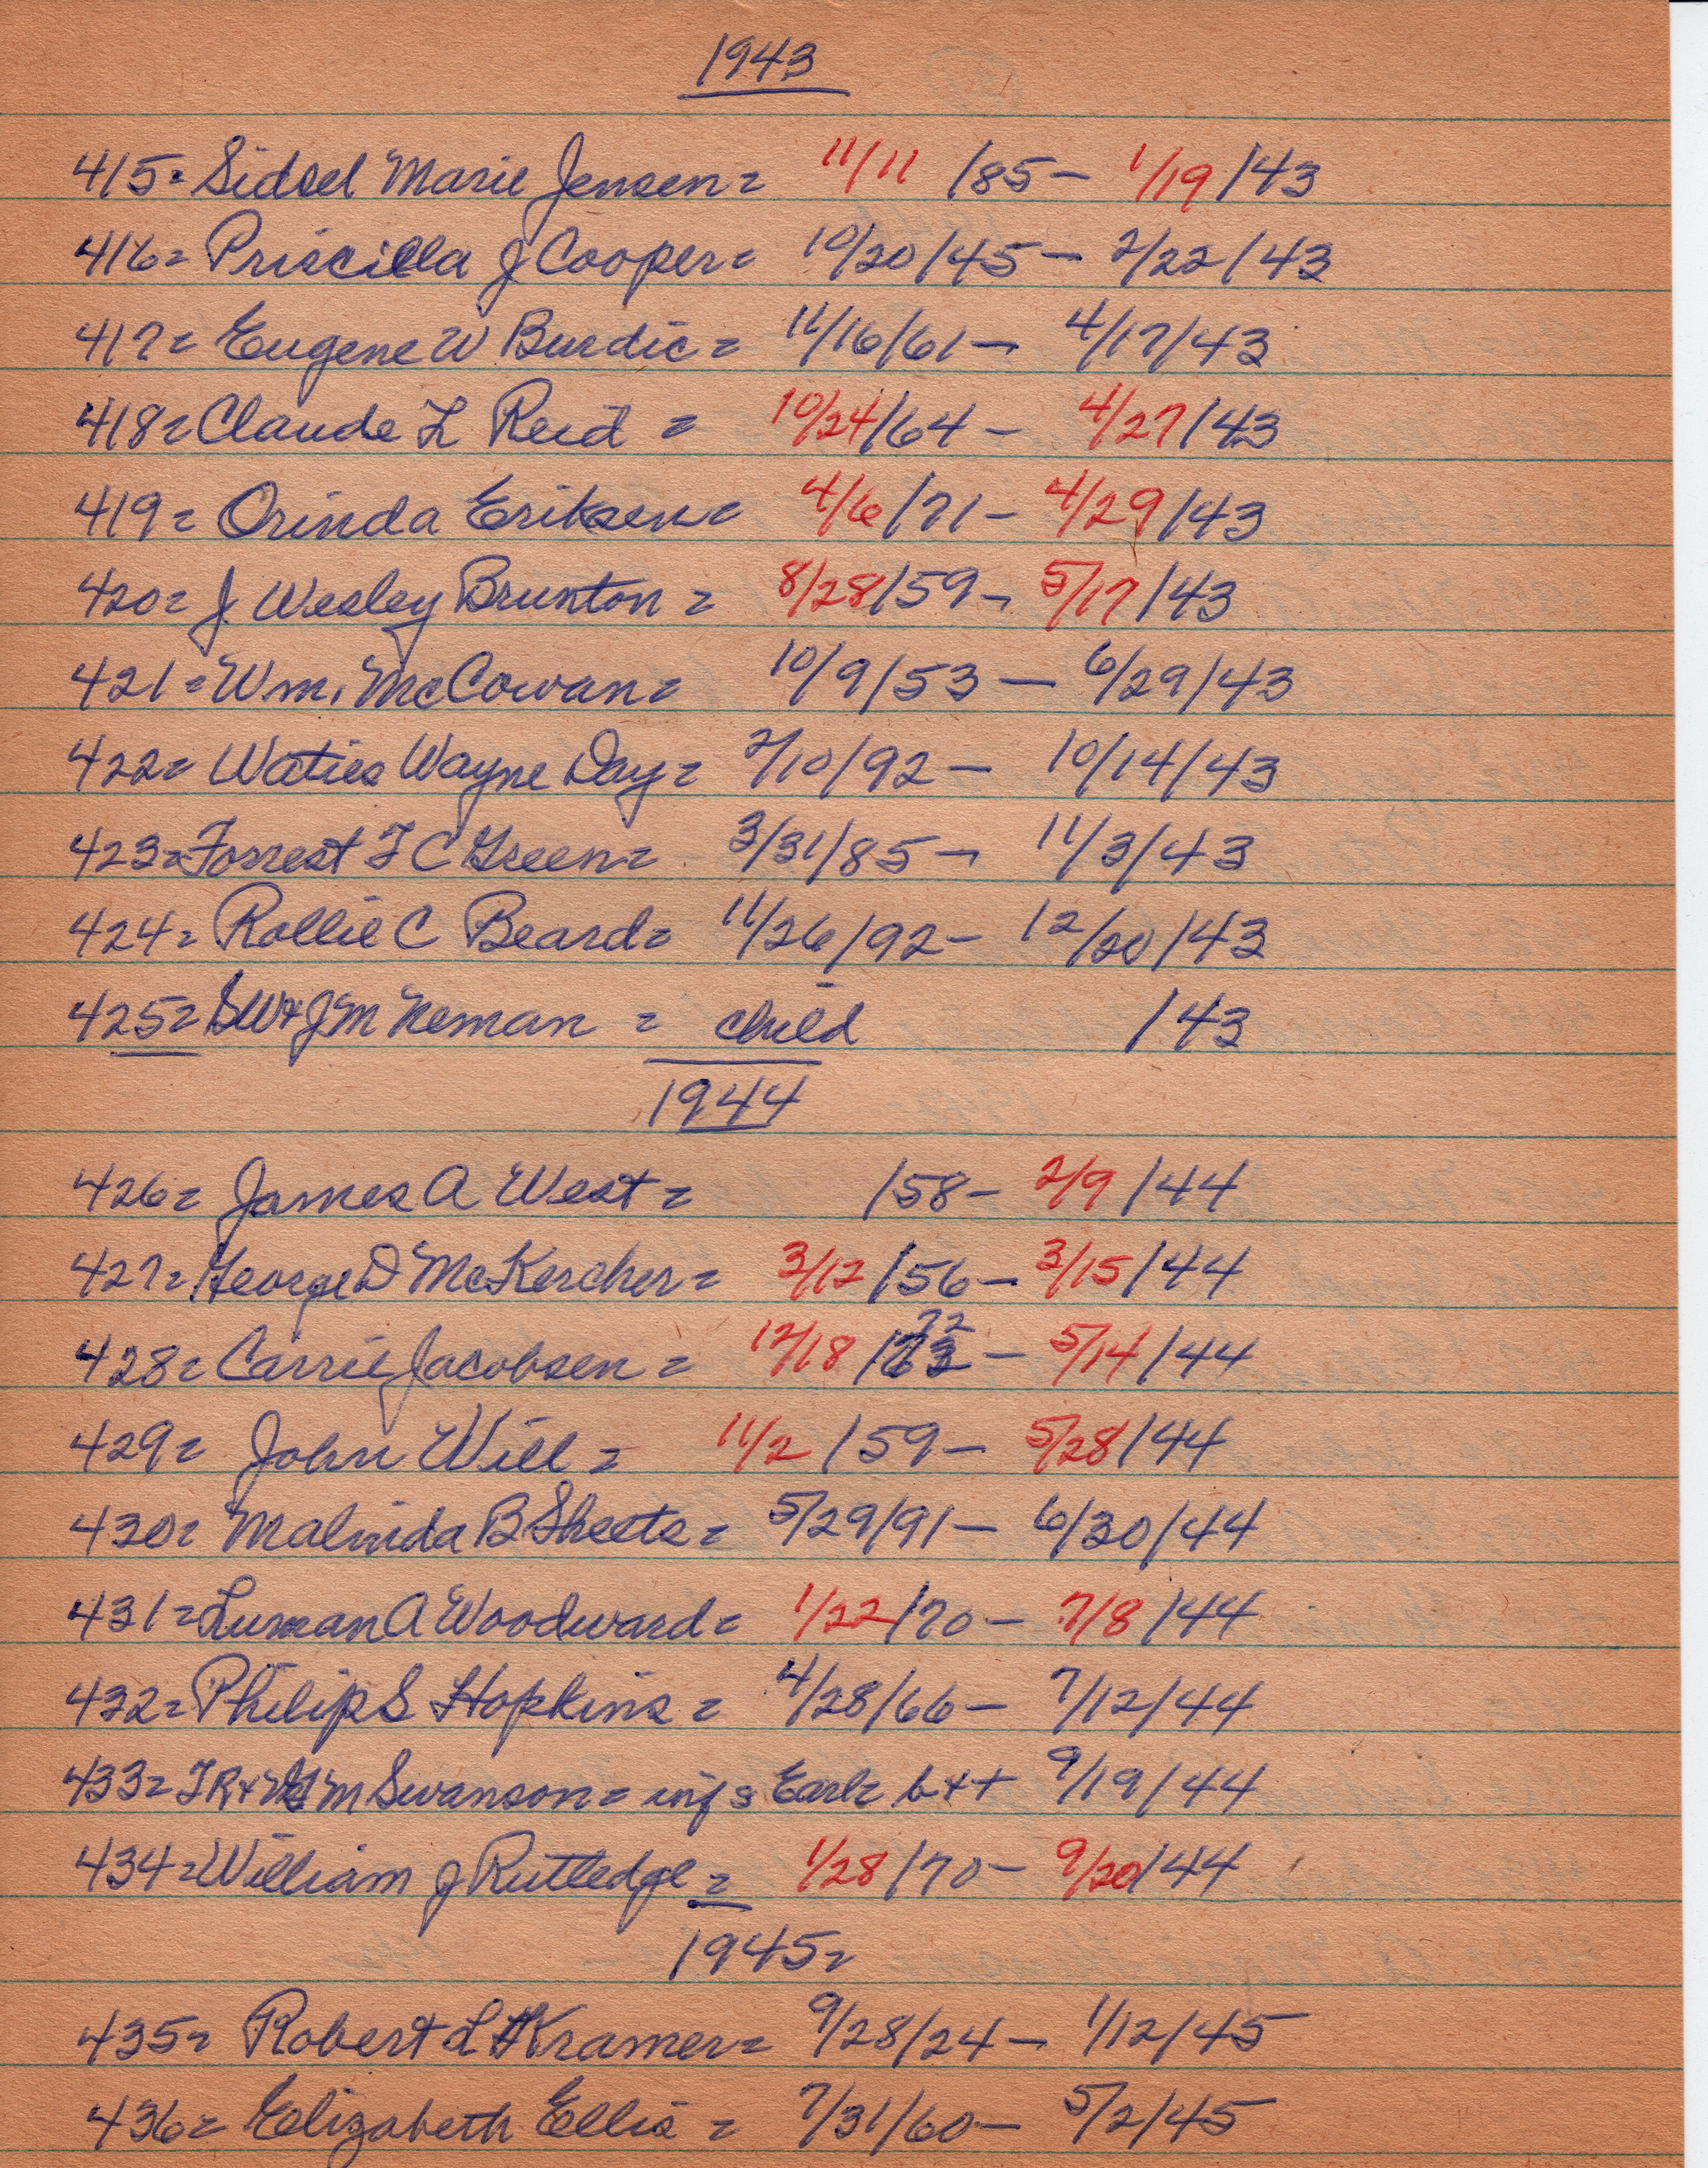 1943
415= Sidsel Marie Jensen= 11/11 /85- 1/19/43
416= Priscilla J Cooper= 10/20/45- 2/22/43
417= Eugene W Burdic= 11/16/61- 4/17/43
418= Claude L Reid = 10/24/64- 4/27/43
419= Orinda Eriksen= 4/6/71- 4/29/43
420= J. Wesley Brunton= 8/28/59- 5/17/43
421= Wm. McCowan= 10/9/53- 6/29/43
422= Waties Wayne Day= 2/10/92- 10/14/43
423= Forrest F C Green= 3/31/85- 11/3/43
424= Rollie C Beard= 11/26/92- 12/20/43
425= SW+JM Neman = child /43
1944
426= James A West= /58- 2/9/44
427= George D McKercher= 3/12/56- 3/15/44
428= Carrie Jacobsen= 12/18/72- 5/14/44
429= John Will= 11/2/59- 5/28/44
430= Malinda B Sheets= 5/29/91- 6/30/44
431= Luman A Woodward= 1/22/70- 7/8/44
432= Philip S Hopkins= 4/28/66- 7/12/44
433= TR+ M Swanson= inf s Earl= b++ 9/19/44
434= William J Rutledge= 1/28/70- 9/20/44
1945=
435= Robert L Kramer= 9/28/24- 1/12/45
436= Elizabeth Ellis= 7/31/60- 5/2/45